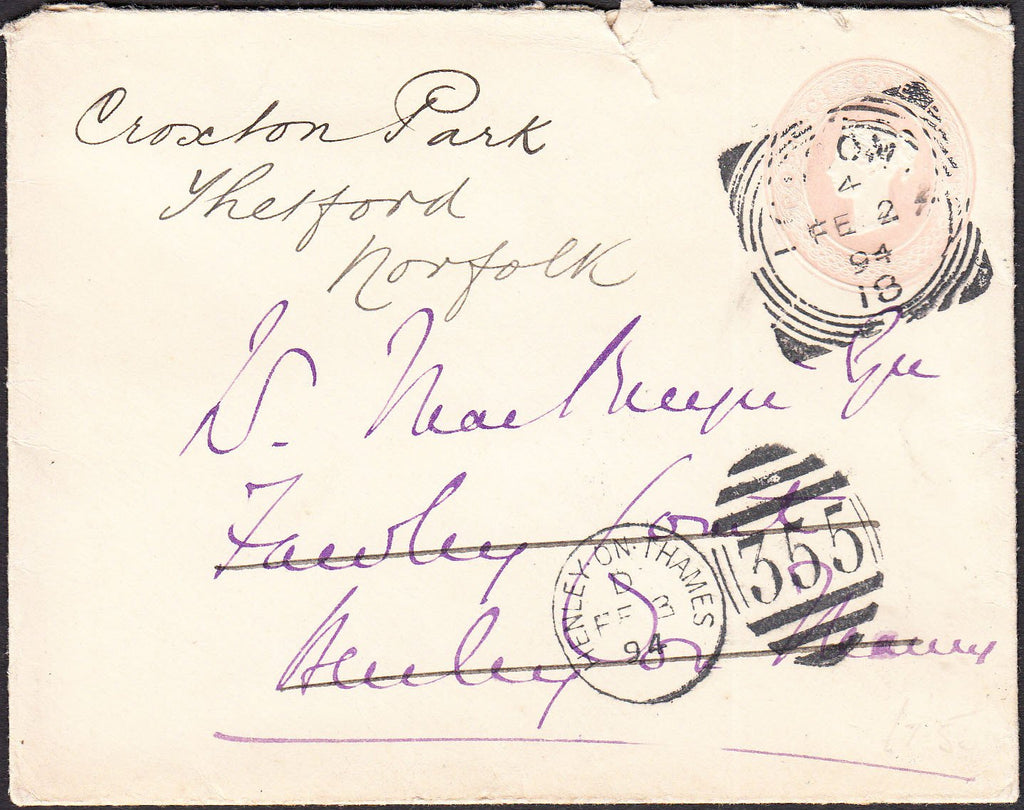 Croxton Park
Thetford
Norfolk
W. Esqre
Fawley Court
Henley on Thames
L
O.W.
4
FE 2
94
18
HENLEY-ON-THAMES
D
FE 3
94
355